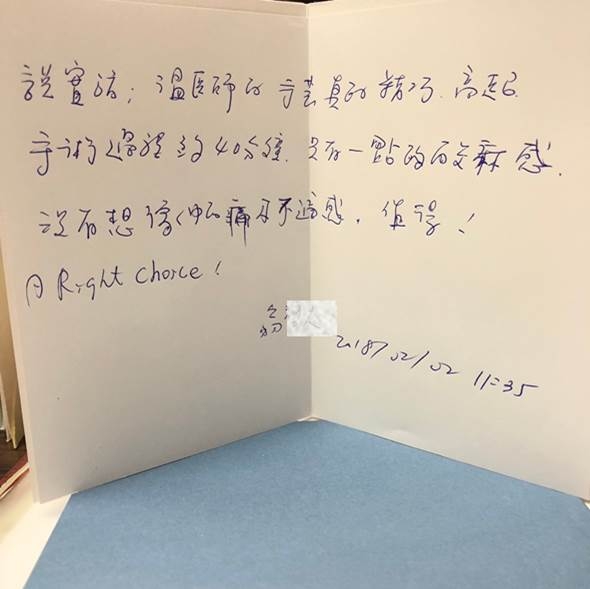 說實話，溫医師的手芸真的精巧、高超。
手術過程約40分鐘、只有一點的酸麻感、
沒有想像中的痛及不適感，值得！
A Right Choice！
2018/02/02 11:35